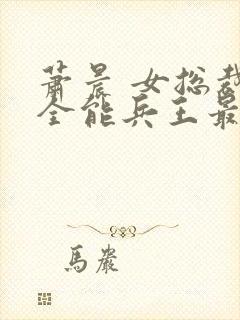 萧晨 女总裁
全能兵王最
馬巖